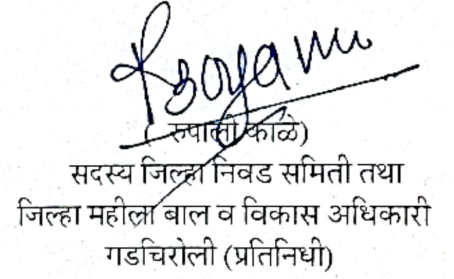 ( रुपाली काळे)
सदस्य जिल्हा निवड समिती तथा
जिल्हा महीला बाल व विकास अधिकारी
गडचिरोली (प्रतिनिधी)